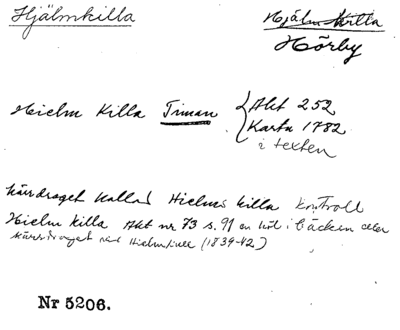 Hjälmkilla
Hjälmkilla
Hörby
Hielm Killa Timan { Akt 252
Karta 1782
i texten
kärrdraget kallad Hielms killa Kontroll
Hielm killa Akt nr 73 s. 91 en höl i bäcken eller
kärrdraget ved Hielmkille (1839-42)
Nr 5206.